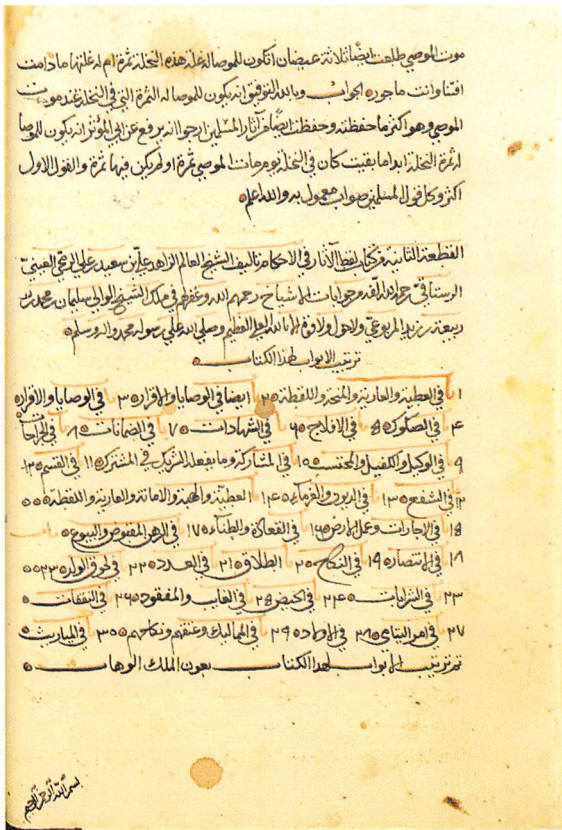 موت الموصي طلعت ايضا ثلاثة عيضان اتكون للموصا له غلة هذه النخلة ثمرة ام له غلتها ما دامت
افتنا وانت ماجور الجواب وبالله التوفيق انه يكون للموصا له الثمرة التي في النخلة عند موت
الموصي وهو اكثر ما حفظته وحفظت ايضا من آثار المسلمين ارجوا انه يرفع عن ابي المؤثر انه يكون للموصا
له ثمرة النخلة ابدا ما بقيت كان في النخلة يوم مات الموصي ثمرة او لم يكن فيها ثمرة والقول الاول
اكثر وكل قول المسلمين صواب معمول به والله اعلم
القطعة الثانية من كتاب لفظ الآثار في الاحكام تاليف الشيخ العالم الزاهد علي بن سعيد بن علي الرمحي العيني
الرستاقي رحمه الله من جوابات الاشياخ رحمهم الله وغفر لهم في ملك الشيخ الوالي سليمان بن محمد بن
ربيعة بن زيد المربوعي ولا حول ولا قوة الا بالله العلي العظيم وصلى الله على رسوله محمد واله وسلم
ترتيب الابواب لهذا الكتاب
١ باب في العطية والعارية والمنحة واللقطة ٢ باب ايضا في الوصايا والاقرار ٣ باب في الوصايا والاقرار
٤ باب في الصكوك ٥ باب في الافلاج ٦ باب في الشهادات ٧ باب في الضمانات ٨ باب في الجراحات
٩ باب في الوكيل والكفيل والمحتسب ١٠ باب في المشاركة وما يفعله الشريك في المشترك ١١ باب في القسم ١٢
١٢ باب في الشفع ١٣ باب في الديون والغرماء ١٤ باب العطية والهبة والامانة والعارية واللقطة
١٥ باب في الاجارات وعمل الارض ١٦ باب في القعادة والطناء ١٧ باب في الرهن المقبوض والبيوع
١٨ باب في الانتصار ١٩ باب في النكاح ٢٠ باب الطلاق ٢١ باب في العدد ٢٢ باب في لحوق الولد ٢٣
٢٣ باب في التراثات ٢٤ باب في الحيض ٢٥ باب في الغايب والمفقود ٢٦ باب في النفقات
٢٧ باب في امر اليتامى ٢٨ باب في الاولاد ٢٩ باب في المماليك وعتقهم ونكاحهم ٣٠ باب في المياريث
تم ترتيب الابواب لهذا الكتاب بعون الملك الوهاب
بسم الله الرحمن الرحيم